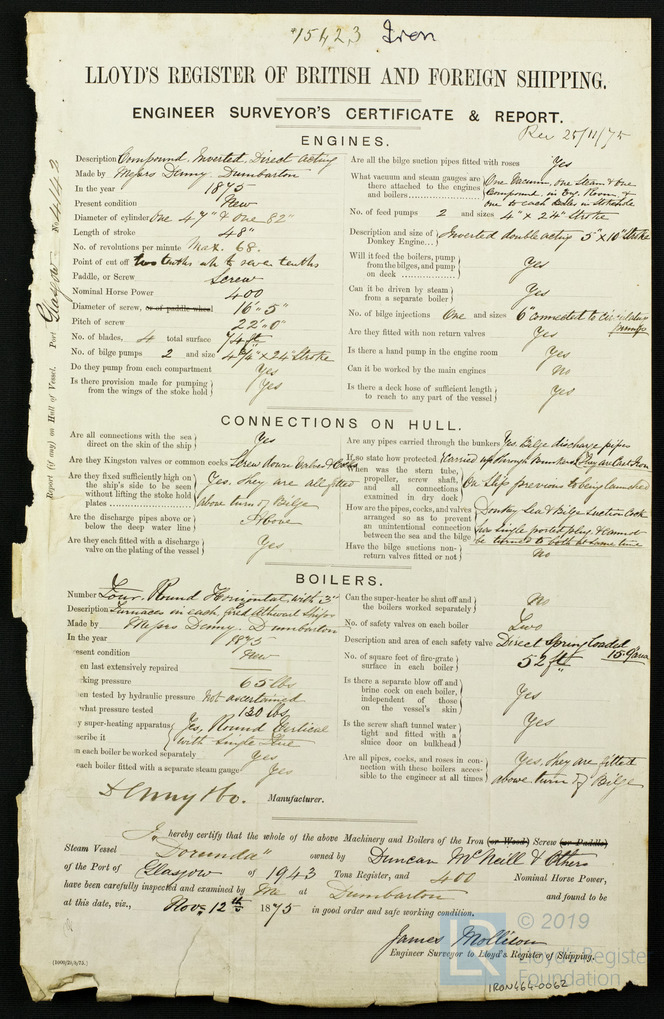 15423 Iron
LLOYD'S REGISTER OF BRITISH AND FOREIGN SHIPPING.
ENGINEER SURVEYOR'S CERTIFICATE & REPORT.
Rec 25/11/75
Report (if any) on Hull of Vessel. Port Glasgow No 4443
ENGINES.
Description Compound, Inverted, Direct acting
Made by Messrs Denny, Dumbarton
In the year 1875
Present condition New
Diameter of cylinder One 47" & one 82"
Length of stroke 48"
No. of revolutions per minute Max. 68.
Point of cut off two tenths up to seven tenths
Paddle, or Screw Screw
Nominal Horse Power 400
Diameter of screw, or of paddle wheel 16'..5"
Pitch of screw 22'..0"
No. of blades, 4 total surface 74 ft
No. of bilge pumps 2 and size 4¾" x 24" Stroke
Do they pump from each compartment Yes
Is there provision made for pumping from the wings of the stoke hold Yes
Are all the bilge suction pipes fitted with roses Yes
What vacuum and steam gauges are there attached to the engines and boilers One Vacuum, one Steam & one Compound, in Eng. Room, & one to each boiler in Stokehole
No. of feed pumps 2 and sizes 4" x 24" Stroke
Description and size of Donkey Engine Inverted double acting 5" x 10" Stroke
Will it feed the boilers, pump from the bilges, and pump on deck Yes
Can it be driven by steam from a separate boiler Yes
No. of bilge injections One and sizes 6" connected to circulating pumps
Are they fitted with non return valves Yes
Is there a hand pump in the engine room Yes
Can it be worked by the main engines No
Is there a deck hose of sufficient length to reach to any part of the vessel Yes
CONNECTIONS ON HULL.
Are all connections with the sea direct on the skin of the ship Yes
Are they Kingston valves or common cocks Screw down Valves & Cocks
Are they fixed sufficiently high on the ship's side to be seen without lifting the stoke hold plates Yes. They are all fitted above turn of Bilge
Are the discharge pipes above or below the deep water line Above
Are they each fitted with a discharge valve on the plating of the vessel Yes.
Are any pipes carried through the bunkers Yes. Bilge discharge pipes
If so state how protected Carried up through Bunkers (They are Cast Iron
When was the stern tube, propeller, screw shaft, and all connections examined in dry dock On Ship previous to being launched
How are the pipes, cocks, and valves arranged so as to prevent an unintentional connection between the sea and the bilge Donkey Sea & Bilge Suction Cock has single ported plug, & cannot be turned to both at same time
Have the bilge suctions non-return valves fitted or not No
BOILERS.
Number Four, Round Horizontal with 3
Description Furnaces in each, fired Athwart Ships
Made by Messrs Denny, Dumbarton
In the year 1875
esent condition New
en last extensively repaired
king pressure 65 lbs
en tested by hydraulic pressure Not ascertained
what pressure tested 130 lbs
y super-heating apparatus scribe it Yes, Round Vertical with single Flue
n each boiler be worked separately Yes
each boiler fitted with a separate steam gauge Yes
Can the super-heater be shut off and the boilers worked separately No
No. of safety valves on each boiler Two
Description and area of each safety valve Direct Spring loaded 15.9 area
No. of square feet of fire-grate surface in each boiler 52 ft
Is there a separate blow off and brine cock on each boiler, independent of those on the vessel's skin Yes
Is the screw shaft tunnel water tight and fitted with a sluice door on bulkhead Yes
Are all pipes, cocks, and roses in connection with these boilers accessible to the engineer at all times Yes, they are fitted above turn of Bilge
Denny & Co. Manufacturer.
I hereby certify that the whole of the above Machinery and Boilers of the Iron (or Wood) Screw (or Paddle)
Steam Vessel "Dorunda" owned by Duncan McNeill & Others
of the Port of Glasgow of 1943 Tons Register, and 400 Nominal Horse Power,
have been carefully inspected and examined by Me at Dumbarton and found to be
at this date, viz., Nov. 12th 1875 in good order and safe working condition.
James Mollison
Engineer Surveyor to Lloyd's Register of Shipping.
LR © 2019 Lloyd's Register Foundation
IRON464-0062